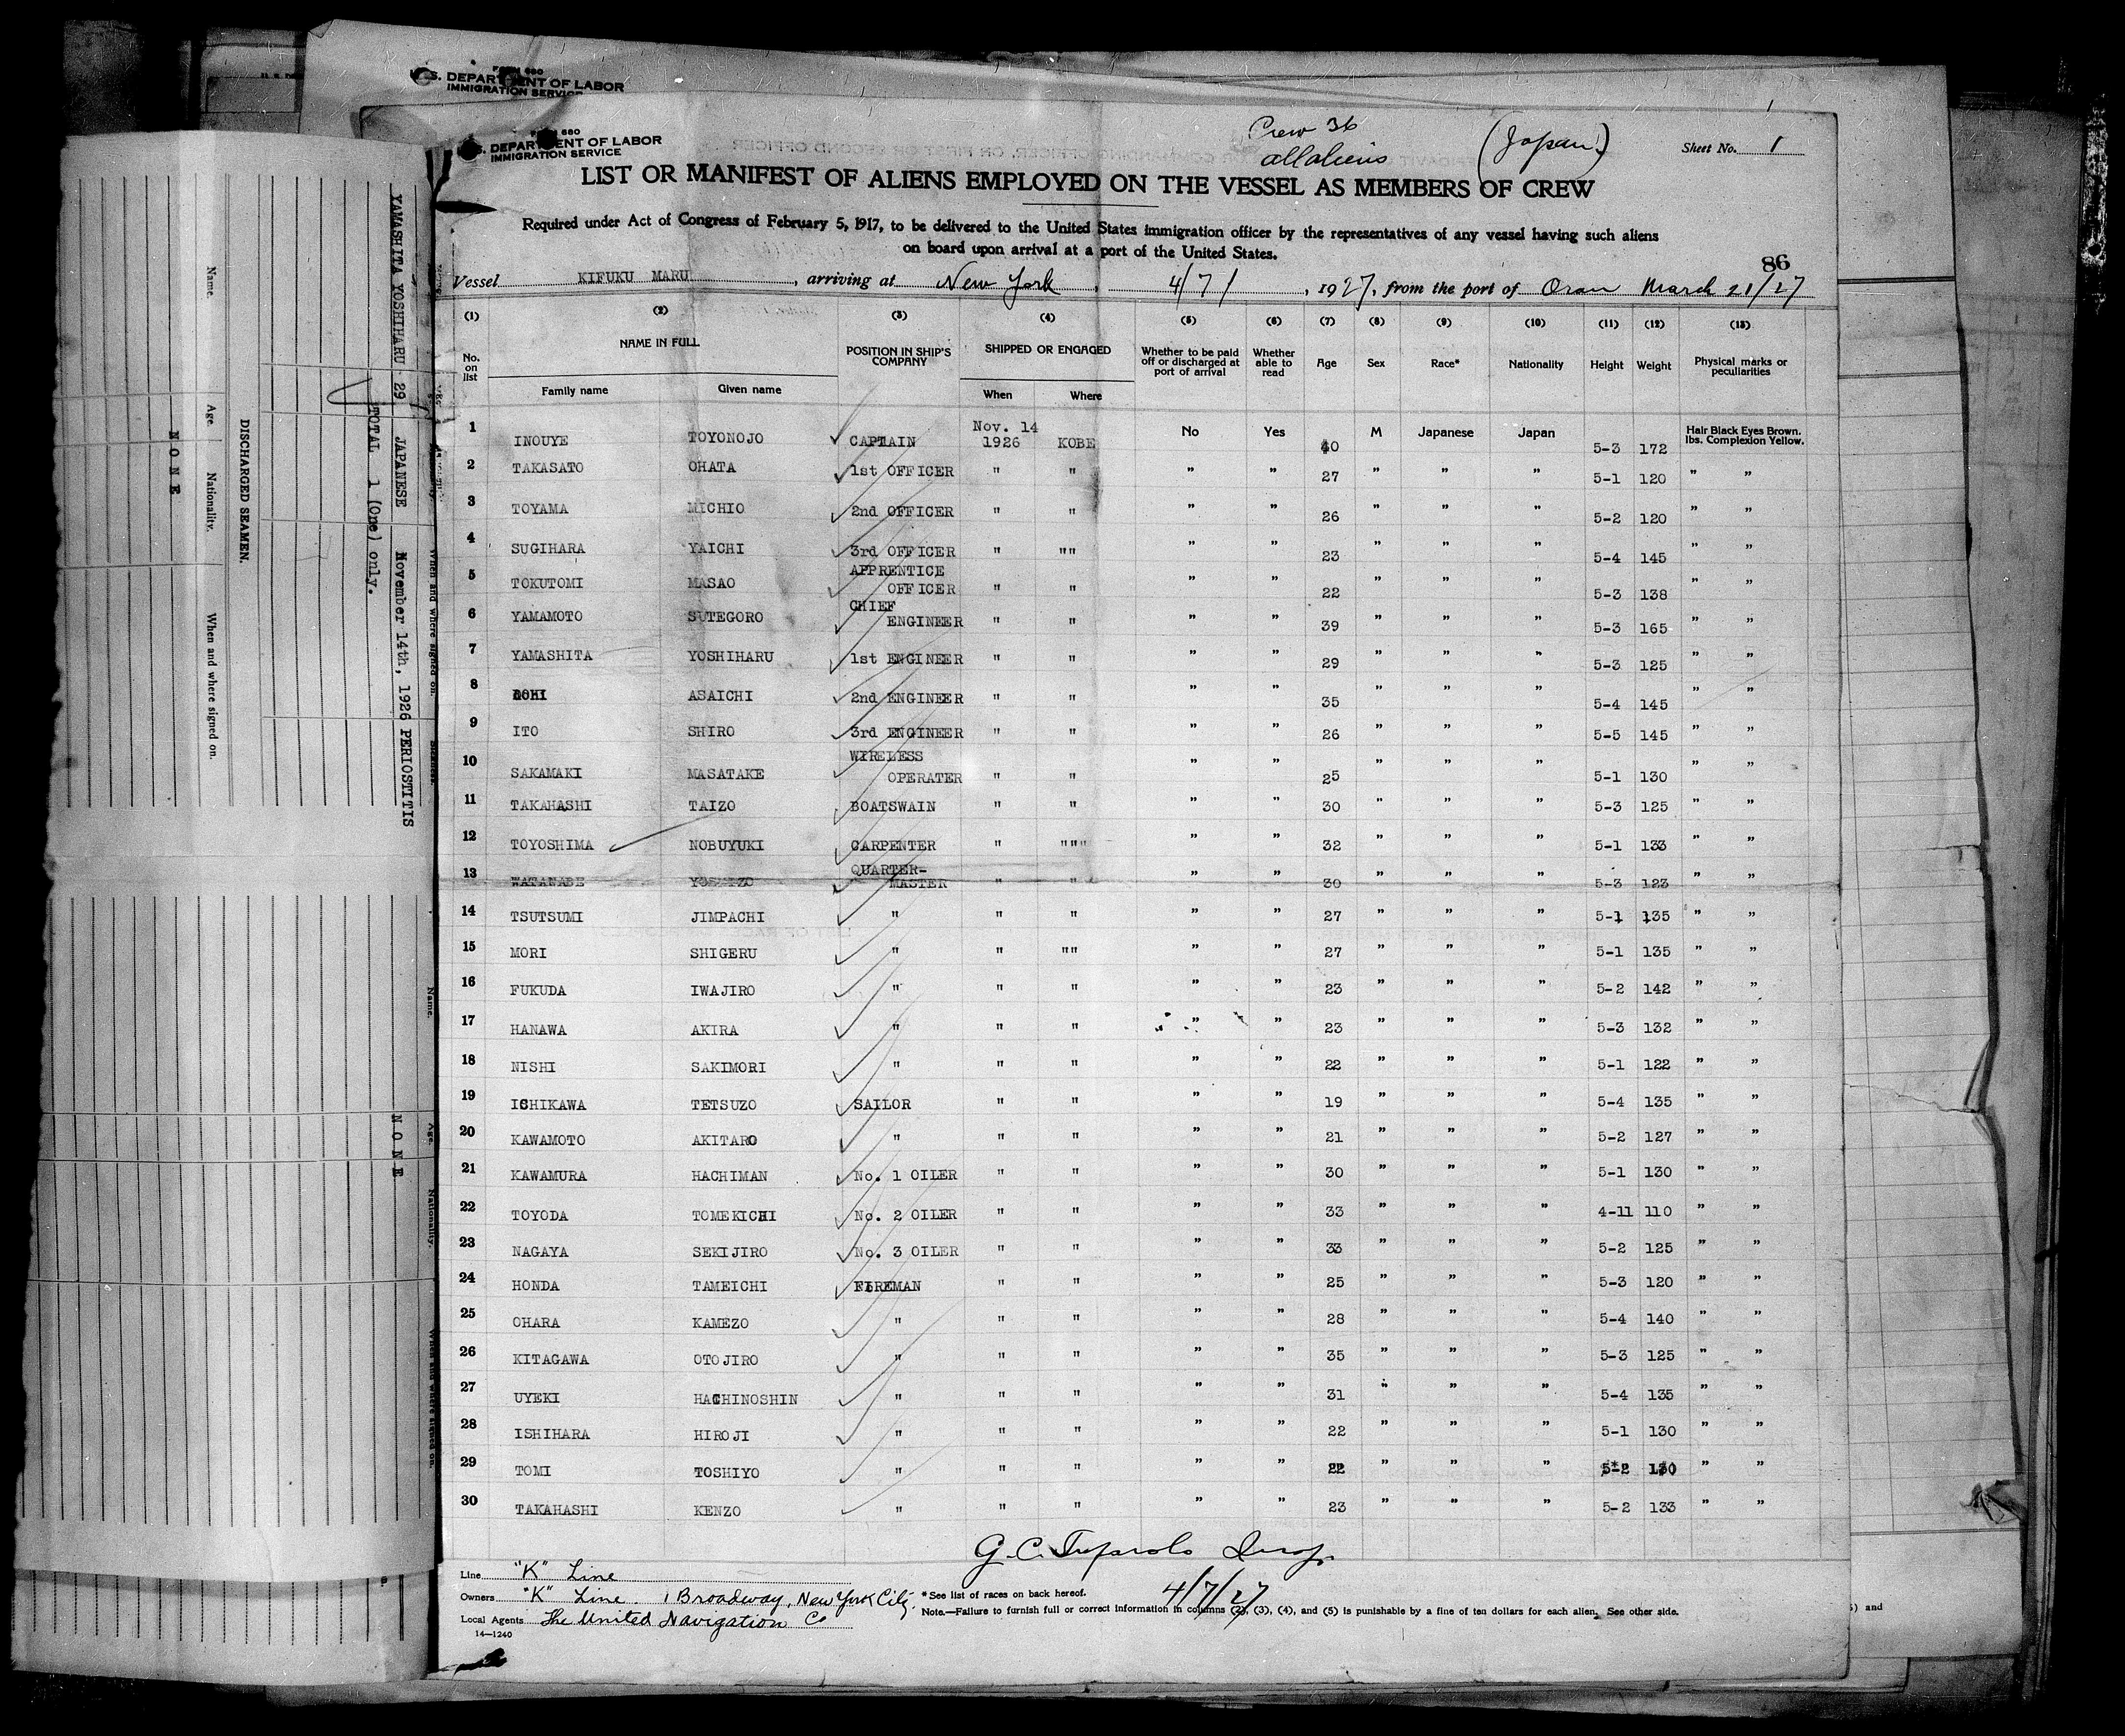 FORM 680
U.S. DEPARTMENT OF LABOR
IMMIGRATION SERVICE
DEPARTMENT OF LABOR
IMMIGRATION SERVICE
Crew 36
all aliens
(Japan.)
Sheet No. 1
LIST OR MANIFEST OF ALIENS EMPLOYED ON THE VESSEL AS MEMBERS OF CREW
Required under Act of Congress of February 5, 1917, to be delivered to the United States immigration officer by the representatives of any vessel having such aliens
on board upon arrival at a port of the United States.
86
Vessel KIFUKU MARU, arriving at New York, 4/7/, 1927, from the port of Oran March 21/27
(1) (2) (3) (4) (5) (6) (7) (8) (9) (10) (11) (12) (13)
No. on list NAME IN FULL Family name Given name POSITION IN SHIP'S COMPANY SHIPPED OR ENGAGED When Where Whether to be paid off or discharged at port of arrival Whether able to read Age Sex Race* Nationality Height Weight Physical marks or peculiarities
1 INOUYE TOYONOJO CAPTAIN Nov. 14 1926 KOBE No Yes 40 M Japanese Japan 5-3 172 Hair Black Eyes Brown. lbs. Complexion Yellow.
2 TAKASATO OHATA 1st OFFICER " " " " 27 " " " 5-1 120 " "
3 TOYAMA MICHIO 2nd OFFICER " " " " 26 " " " 5-2 120 " "
4 SUGIHARA YAICHI 3rd OFFICER " "" " " 23 " " " 5-4 145 " "
5 TOKUTOMI MASAO APPRENTICE OFFICER " " " " 22 " " " 5-3 138 " "
6 YAMAMOTO SUTEGORO CHIEF ENGINEER " " " " 39 " " " 5-3 165 " "
7 YAMASHITA YOSHIHARU 1st ENGINEER " " " " 29 " " " 5-3 125 " "
8 ASAICHI 2nd ENGINEER " " " " 35 " " " 5-4 145 " "
9 ITO SHIRO 3rd ENGINEER " " " " 26 " " " 5-5 145 " "
10 SAKAMAKI MASATAKE WIRELESS OPERATER " " " " 25 " " " 5-1 130 " "
11 TAKAHASHI TAIZO BOATSWAIN " " " " 30 " " " 5-3 125 " "
12 TOYOSHIMA NOBUYUKI CARPENTER " """ " " 32 " " " 5-1 133 " "
13 WATANABE QUARTER-MASTER " " " " 30 " " " 5-3 123 " "
14 TSUTSUMI JIMPACHI " " " " " 27 " " " 5-1 135 " "
15 MORI SHIGERU " " "" " " 27 " " " 5-1 135 " "
16 FUKUDA IWAJIRO " " " " " 23 " " " 5-2 142 " "
17 HANAWA AKIRA " " " " " 23 " " " 5-3 132 " "
18 NISHI SAKIMORI " " " " " 22 " " " 5-1 122 " "
19 ISHIKAWA TETSUZO SAILOR " " " " 19 " " " 5-4 135 " "
20 KAWAMOTO AKITARO " " " " " 21 " " " 5-2 127 " "
21 KAWAMURA HACHIMAN No. 1 OILER " " " " 30 " " " 5-1 130 " "
22 TOYODA TOMEKICHI No. 2 OILER " " " " 33 " " " 4-11 110 " "
23 NAGAYA SEKIJIRO No. 3 OILER " " " " 33 " " " 5-2 125 " "
24 HONDA TAMEICHI FIREMAN " " " " 25 " " " 5-3 120 " "
25 OHARA KAMEZO " " " " " 28 " " " 5-4 140 " "
26 KITAGAWA OTOJIRO " " " " " 35 " " " 5-3 125 " "
27 UYEKI HACHINOSHIN " " " " " 31 " " " 5-4 135 " "
28 ISHIHARA HIROJI " " " " " 22 " " " 5-1 130 " "
29 TOMI TOSHIYO " " " " " 22 " " " 5-2 130 " "
30 TAKAHASHI KENZO " " " " " 23 " " " 5-2 133 " "
G. C.
4/7/27
Line "K" Line
Owners "K" Line. 1 Broadway, New York City
Local Agents The United Navigation Co
14—1240
*See list of races on back hereof.
Note.—Failure to furnish full or correct information in columns (2), (3), (4), and (5) is punishable by a fine of ten dollars for each alien. See other side.
YAMASHITA YOSHIHARU 29 JAPANESE November 14th, 1926 PERIOSTITIS
TOTAL 1 (One) only.
DISCHARGED SEAMEN.
Name. Age. Nationality. When and where signed on.
NONE
Name. Age. Nationality. When and where signed on.
NONE